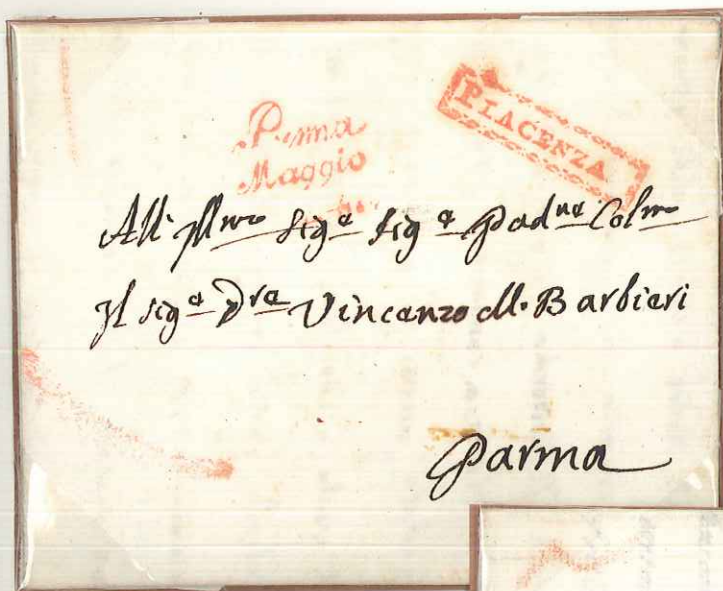 Parma
Maggio
PIACENZA
All' Illmo Siga Siga Padne Colmo
Il siga Dra Vincenzo M. Barbieri
Parma